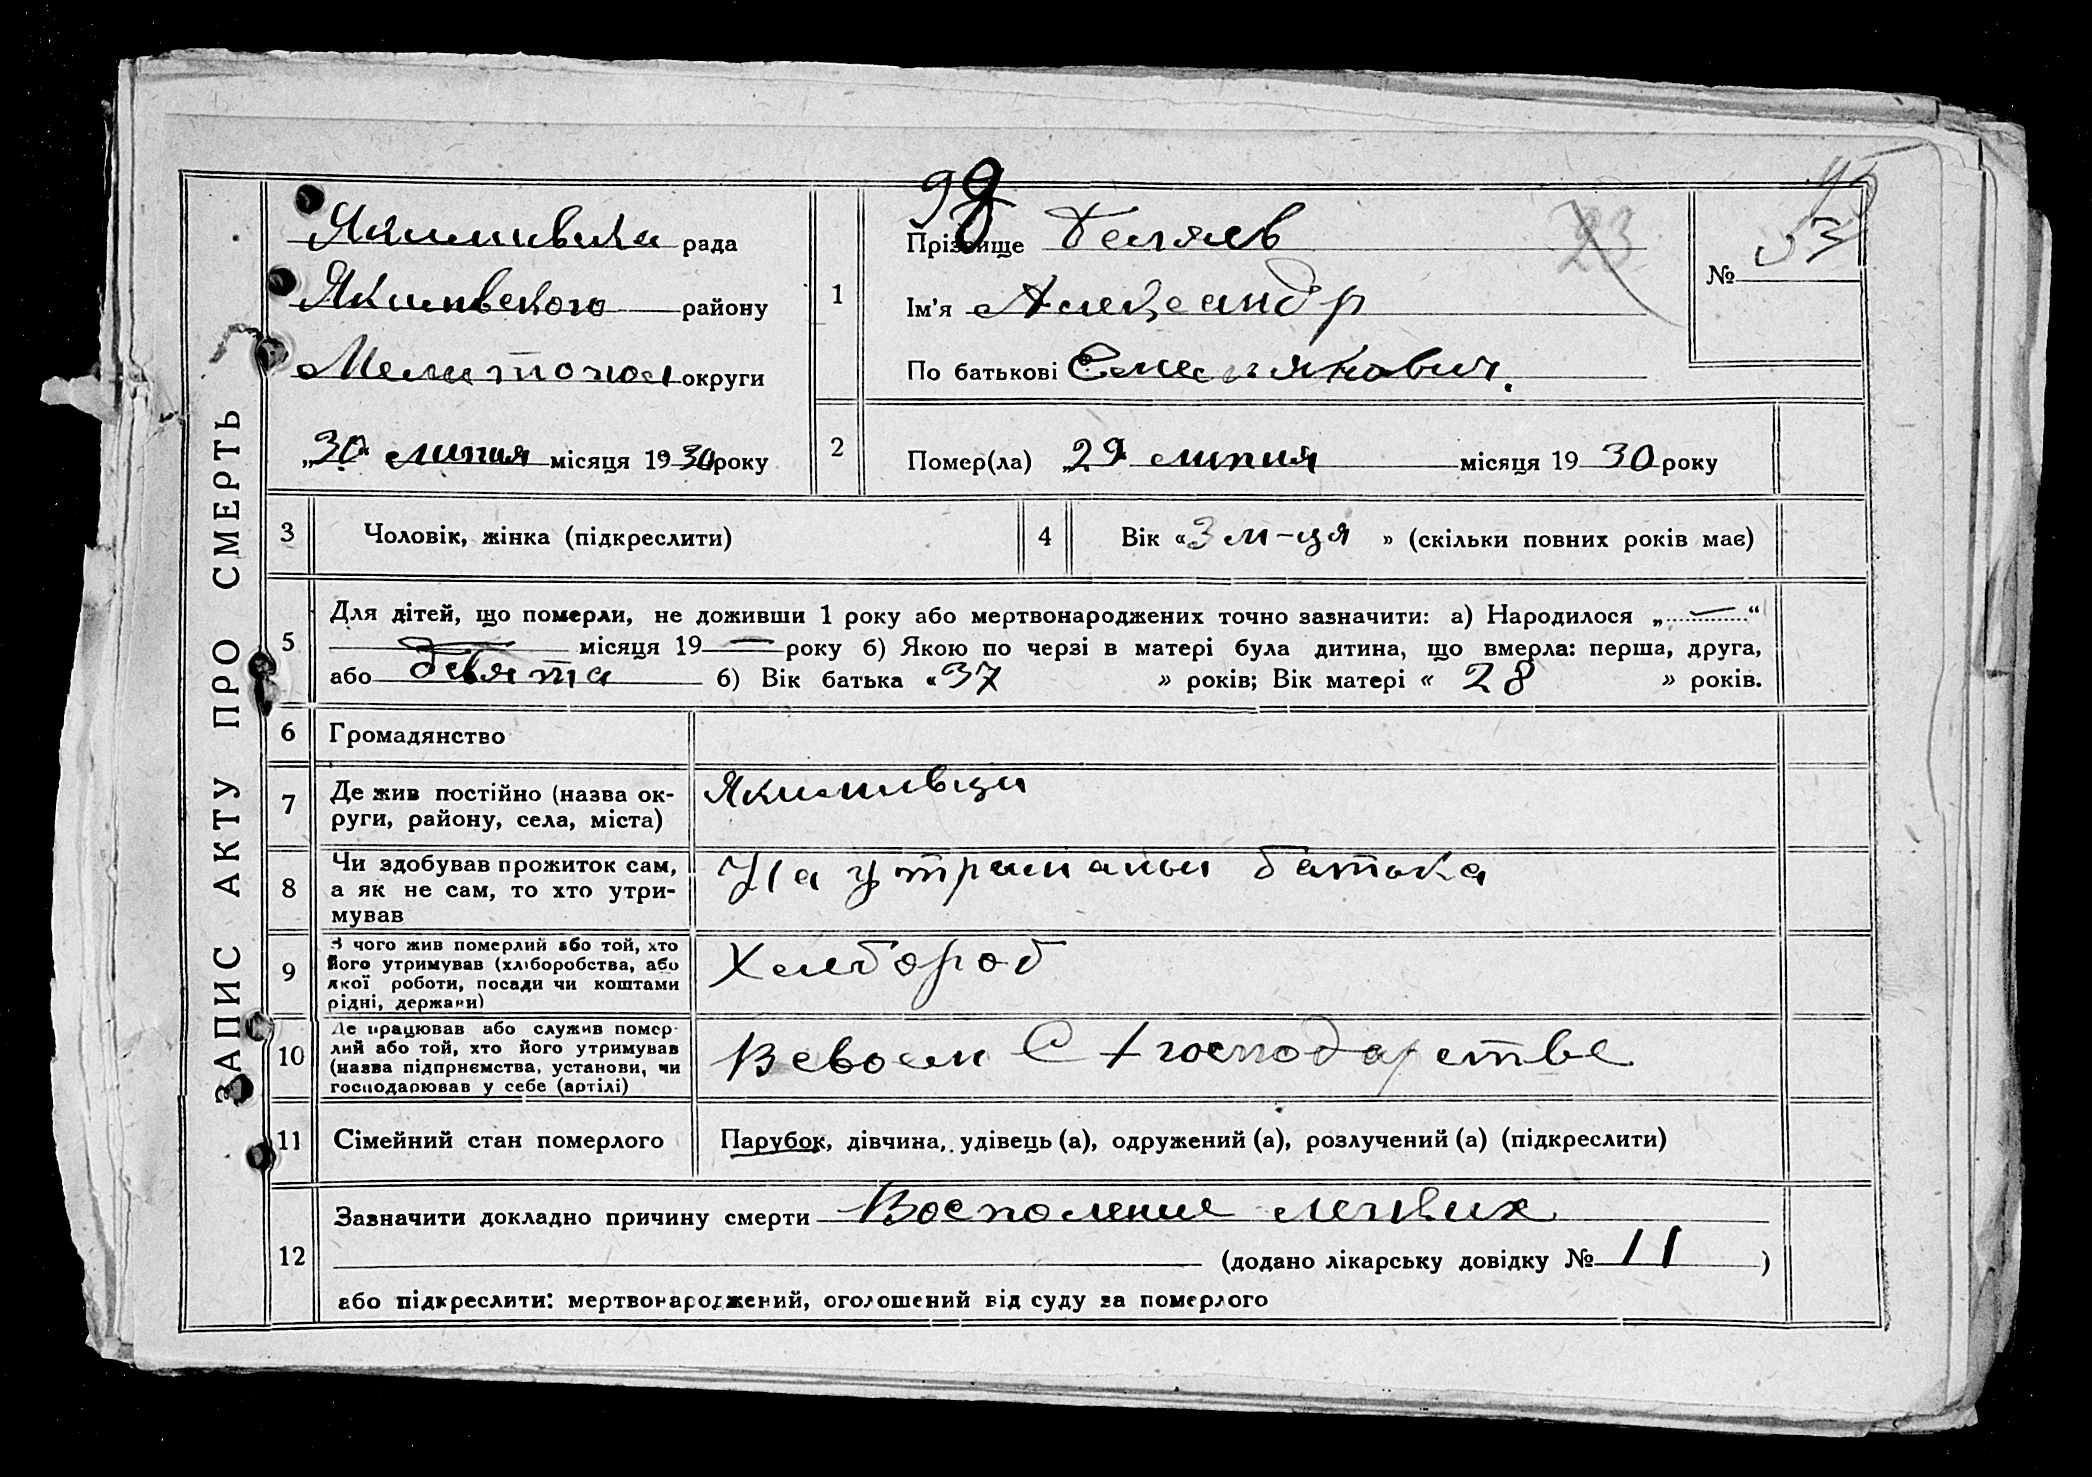 ЗАПИС АКТУ ПРО СМЕРТЬ
98
45
23
Якимивська рада
Якимівського району
Мелитопол округи
„30“ липня місяця 1930 року
1
Прізвище Беляев
Ім'я Александр
По батькові Емельянович.
№ 53
2
Помер(ла) „29“ липня місяця 1930 року
3 Чоловік, жінка (підкреслити)
4 Вік «3 м-ця» (скільки повних років має)
5
Для дітей, що померли, не доживши 1 року або мертвонароджених точно зазначити: а) Народилося „—“
— місяця 19— року б) Якою по черзі в матері була дитина, що вмерла: перша, друга,
або девята б) Вік батька «37» років; Вік матері «28» років.
6 Громадянство
7 Де жив постійно (назва ок-
руги, району, села, міста)
Якимивци
8 Чи здобував прожиток сам,
а як не сам, то хто утри-
мував
На утриманьи батька
9 З чого жив померлий або той, хто
його утримував (хліборобства, або
якої роботи, посади чи коштами
рідні, держави)
Хлебороб
10 Де працював або служив помер-
лий або той, хто його утримував
(назва підприємства, установи, чи
господарював у себе (артілі)
В своем С/господарстве
11 Сімейний стан померлого
Парубок, дівчина, удівець (а), одружений (а), розлучений (а) (підкреслити)
12
Зазначити докладно причину смерти Восполение легких
(додано лікарську довідку № 11)
або підкреслити: мертвонароджений, оголошений від суду за померлого